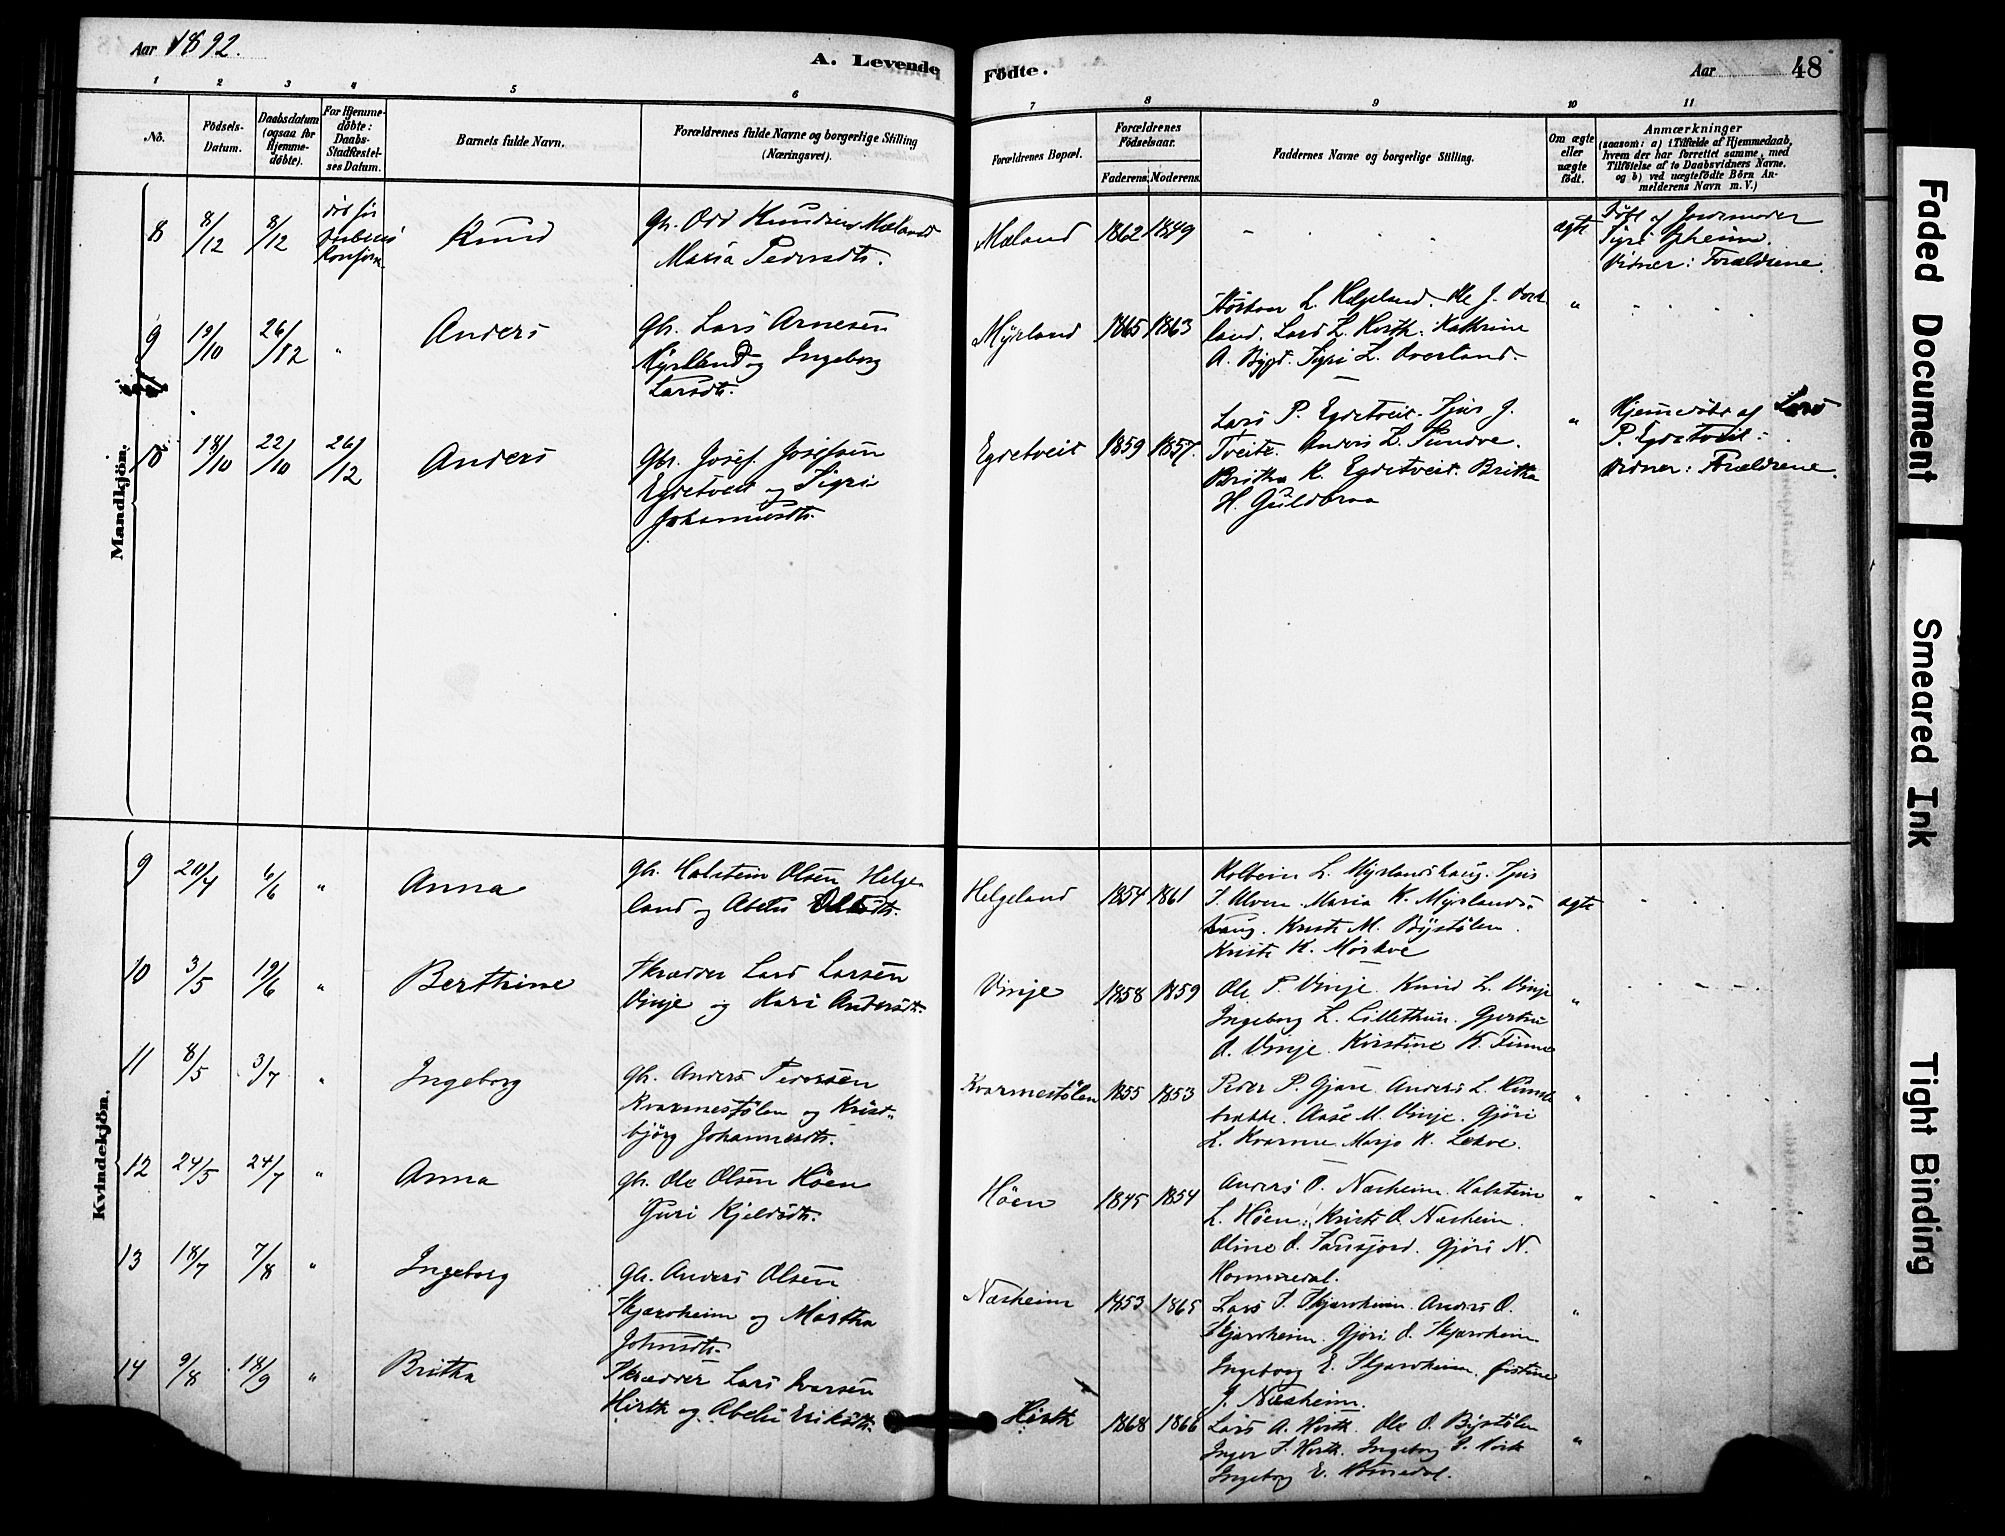 Aar 1892.
A. Levende
Födte.
Aar
48
1
2
3
4
5
6
7
8
9
10
11
No.
Födsels-
Datum.
Daabsdatum
(ogsaa for
Hjemme-
döbte).
For Hjemme-
döbte:
Daabs-
Stadfæstel-
ses Datum.
Barnets fulde Navn.
Forældrenes fulde Navne og borgerlige Stilling
(Næringsvei).
Forældrenes Bopæl.
Forældrenes
Födselsaar.
Faderens.
Moderens.
Faddernes Navne og borgerlige Stilling.
Om ægte
eller
uægte
födt.
Anmærkninger
(saasom: a) i Tilfælde af Hjemmedaab,
hvem der har forrettet samme, med
Tilföielse af to Daabsvidners Navne.
og b) ved uægtefödte Börn An-
melderens Navn m. V.)
Mandkjön.
8
8/12
8/12
död før
Knud
Gbr. Odd Knudsen Mæland
Maria Pedersdtr.
Mæland
1862
1849
ægte
Döbt af Jordemoder
Vidner: Forældrene.
9
19/10
26/12
"
Anders
Gbr. Lars Arnesen
Myrland og Ingeborg
Larsdtr.
Myrland
1865
1863
L. Helgeland. Ole J.
land. Lars L. Hirth. Kathrine
A. Bygd. Sygri L. Överland.
"
10
18/10
22/10
26/12
Anders
Gbr. Josef Josefsen
Egdetveit og Sigri
Johannesdtr.
Egdetveit
1859
1857.
Lars P. Egdetveit. Sjur J.
Tveite. Anders L. Sundve.
Britha K. Egdetveit. Britha
H. Guldbraa
"
Hjemmedöbt af Lars
P. Egdetveit.
Vidner: Forældrene.
Kvindekjön.
9
20/4
6/6
"
Anna
Gbr. Halstein Olsen Helge-
land og Abelu Olsdtr.
Helgeland
1854
1861
Kolbein L. Myrlandshaug. Sjur
S. Ulven. Maria K. Myrlands-
haug. Kristi M. Böstölen.
Kristi K. Mörkve
ægte
10
3/5
19/6
"
Berthine
Skrædder Lars Larsen
Vinje og Kari Andersdtr.
Vinje
1858
1859
Ole P. Vinje. Knud L. Vinje
Ingeborg L. Lillethun. Gjertru
O. Vinje. Kirstine K. Finne
"
11
8/5
3/7
"
Ingeborg
Gbr. Anders Pedersen
Kvarmestölen og Krist-
björg Johannesdtr.
Kvarmestölen
1855
1853
Peder P. Gjære. Anders L.
Aase M. Vinje. Gjöri
L. Kvarme. Marjo K. Lekve.
"
12
24/5
24/7
"
Anna
Gbr. Ole Olsen Höen
Guri Kjeldsdtr.
Höen
1845
1854
Anders O. Næsheim. Halstein
L. Höen. Kristi O. Næsheim.
Oline O. Gjöri N.
Hommedal.
"
13
18/7
7/8
"
Ingeborg
Gbr. Anders Olsen
Skjærvheim og Martha
Johnsdtr.
Næsheim
1853
1865
Lars S. Skjærvheim. Anders O.
Skjærvheim. Gjöri O. Skjærvheim
Ingeborg E. Skjærvheim. Kristine
J. Næsheim.
"
14
9/8
18/9
"
Britha
Skrædder Lars Ivarsen
Hirth og Abelu Eriksdtr.
Hirth
1868
1866
Lars A. Hirth. Ole O. Böstölen
Inger S. Hirth. Ingeborg S. Hirth
Ingeborg E.
"
Faded Document
Smeared Ink
Tight Binding